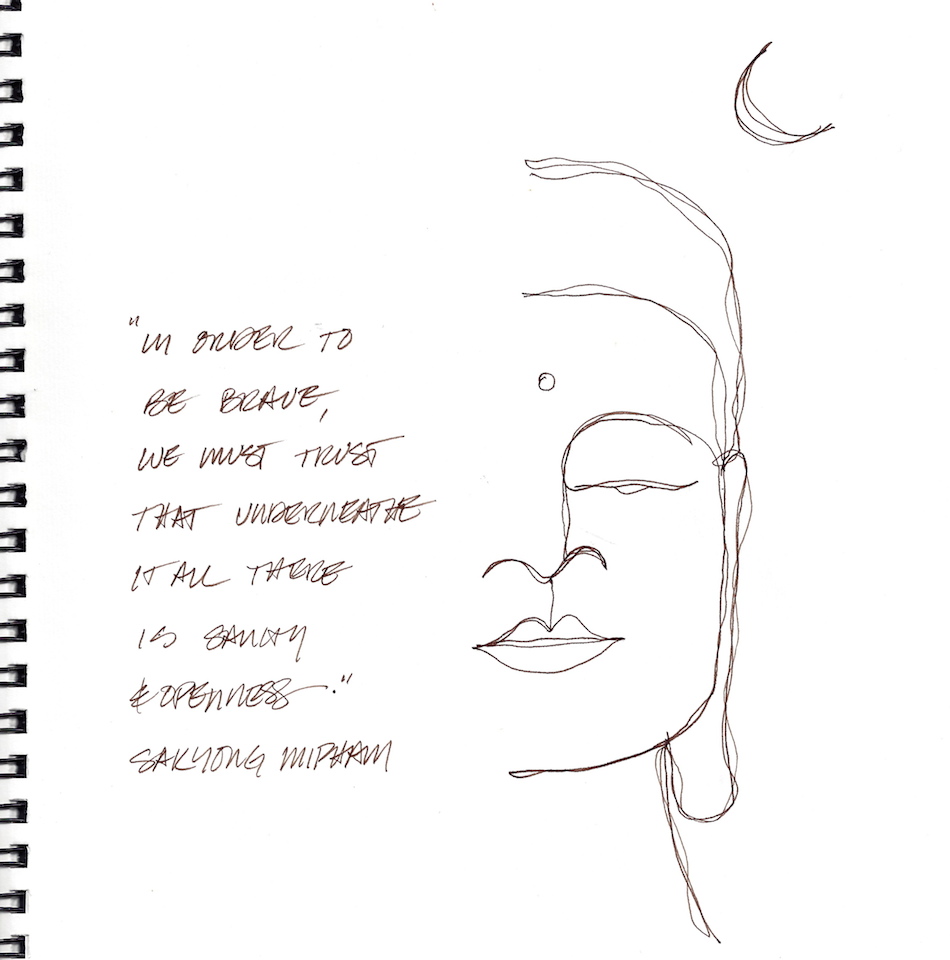 "IN ORDER TO
BE BRAVE,
WE MUST TRUST
THAT UNDERNEATHE
IT ALL THERE
IS SANITY
& OPENNESS."
SAKYONG MIPHAM